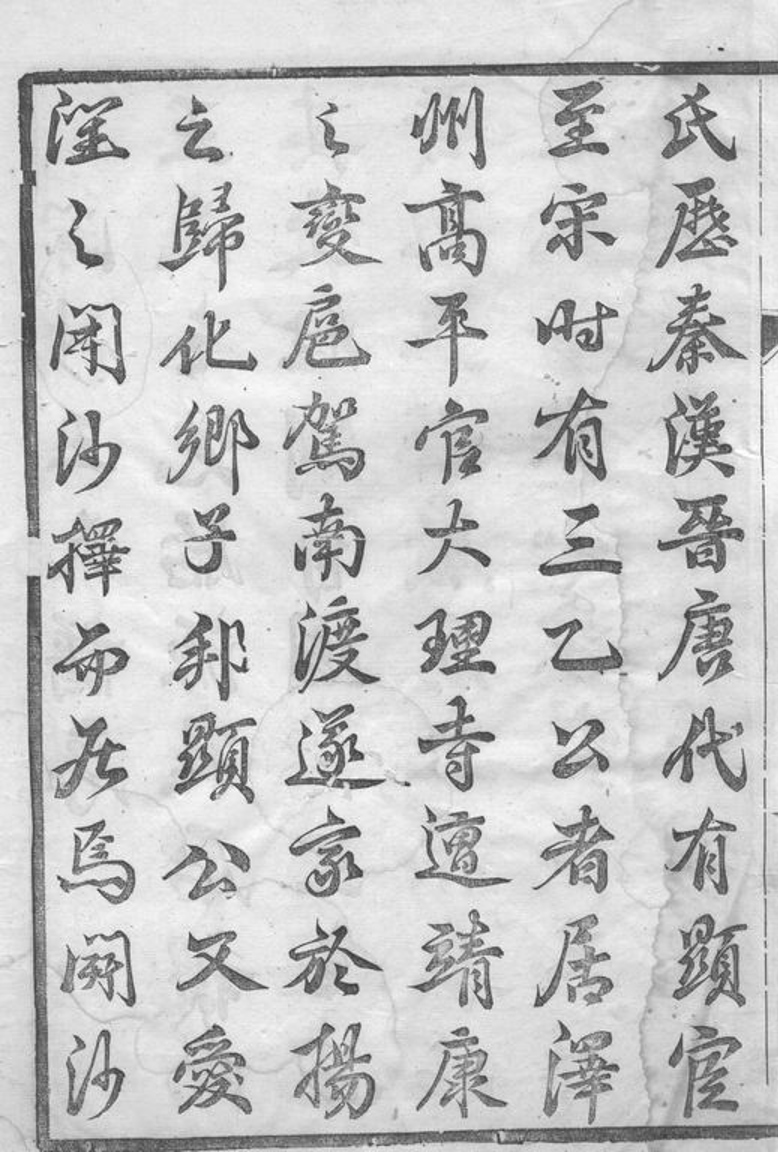 氏歷秦漢晉唐代有顯官
至宋时有三乙公者居澤
州高平官大理寺遭靖康
之變扈駕南渡遂家於揚
之歸化鄉子邦顯公又愛
潤之開沙擇而居焉開沙